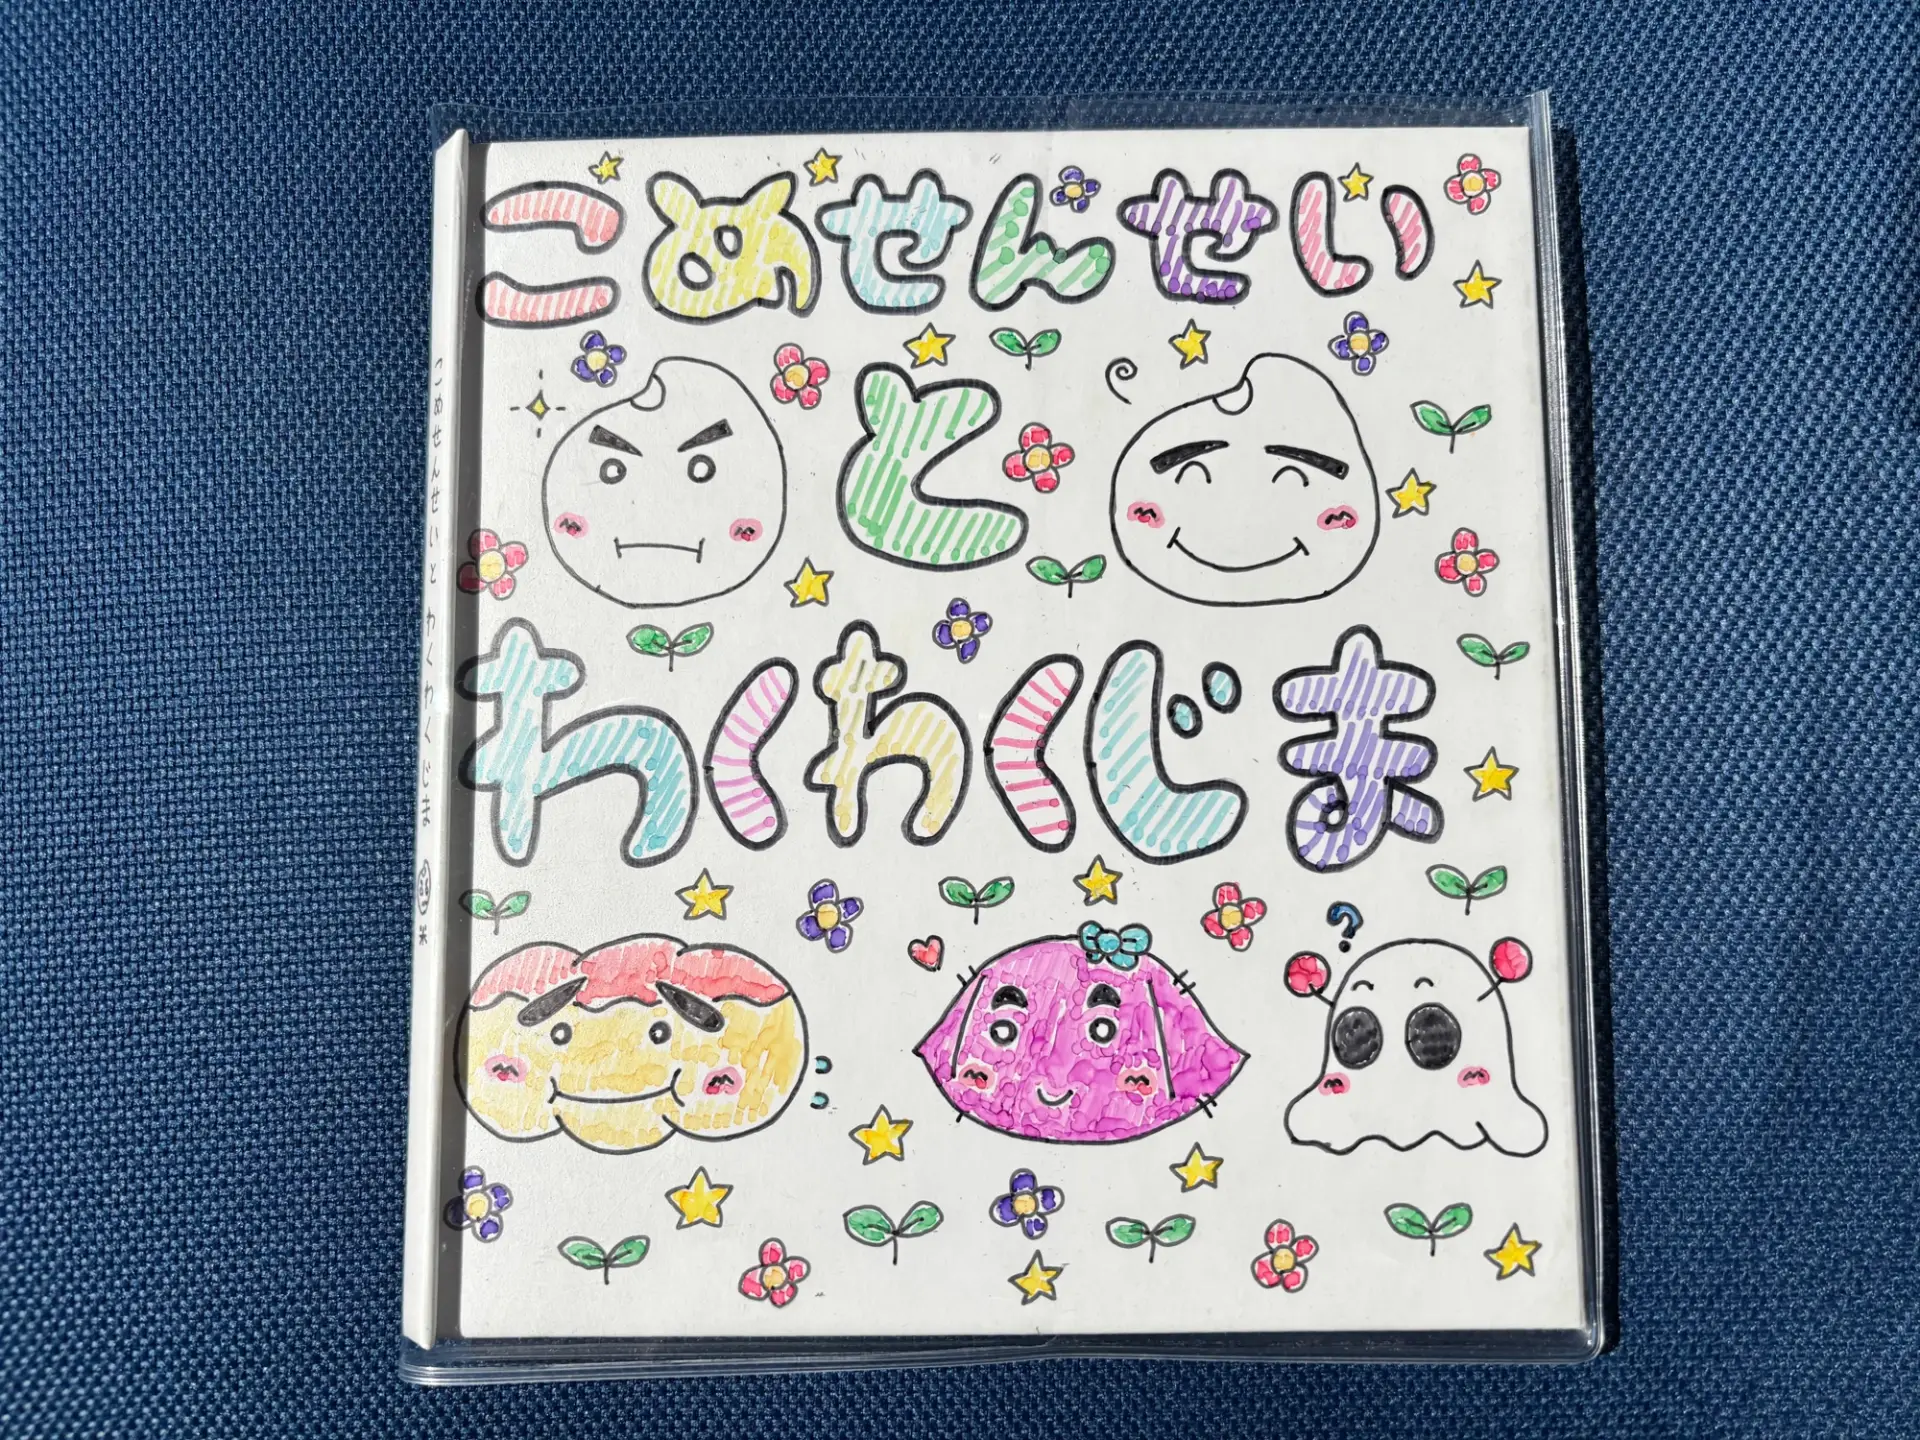 こめせんせい
と
わくわくじま
?
こめせんせいと わくわくじま